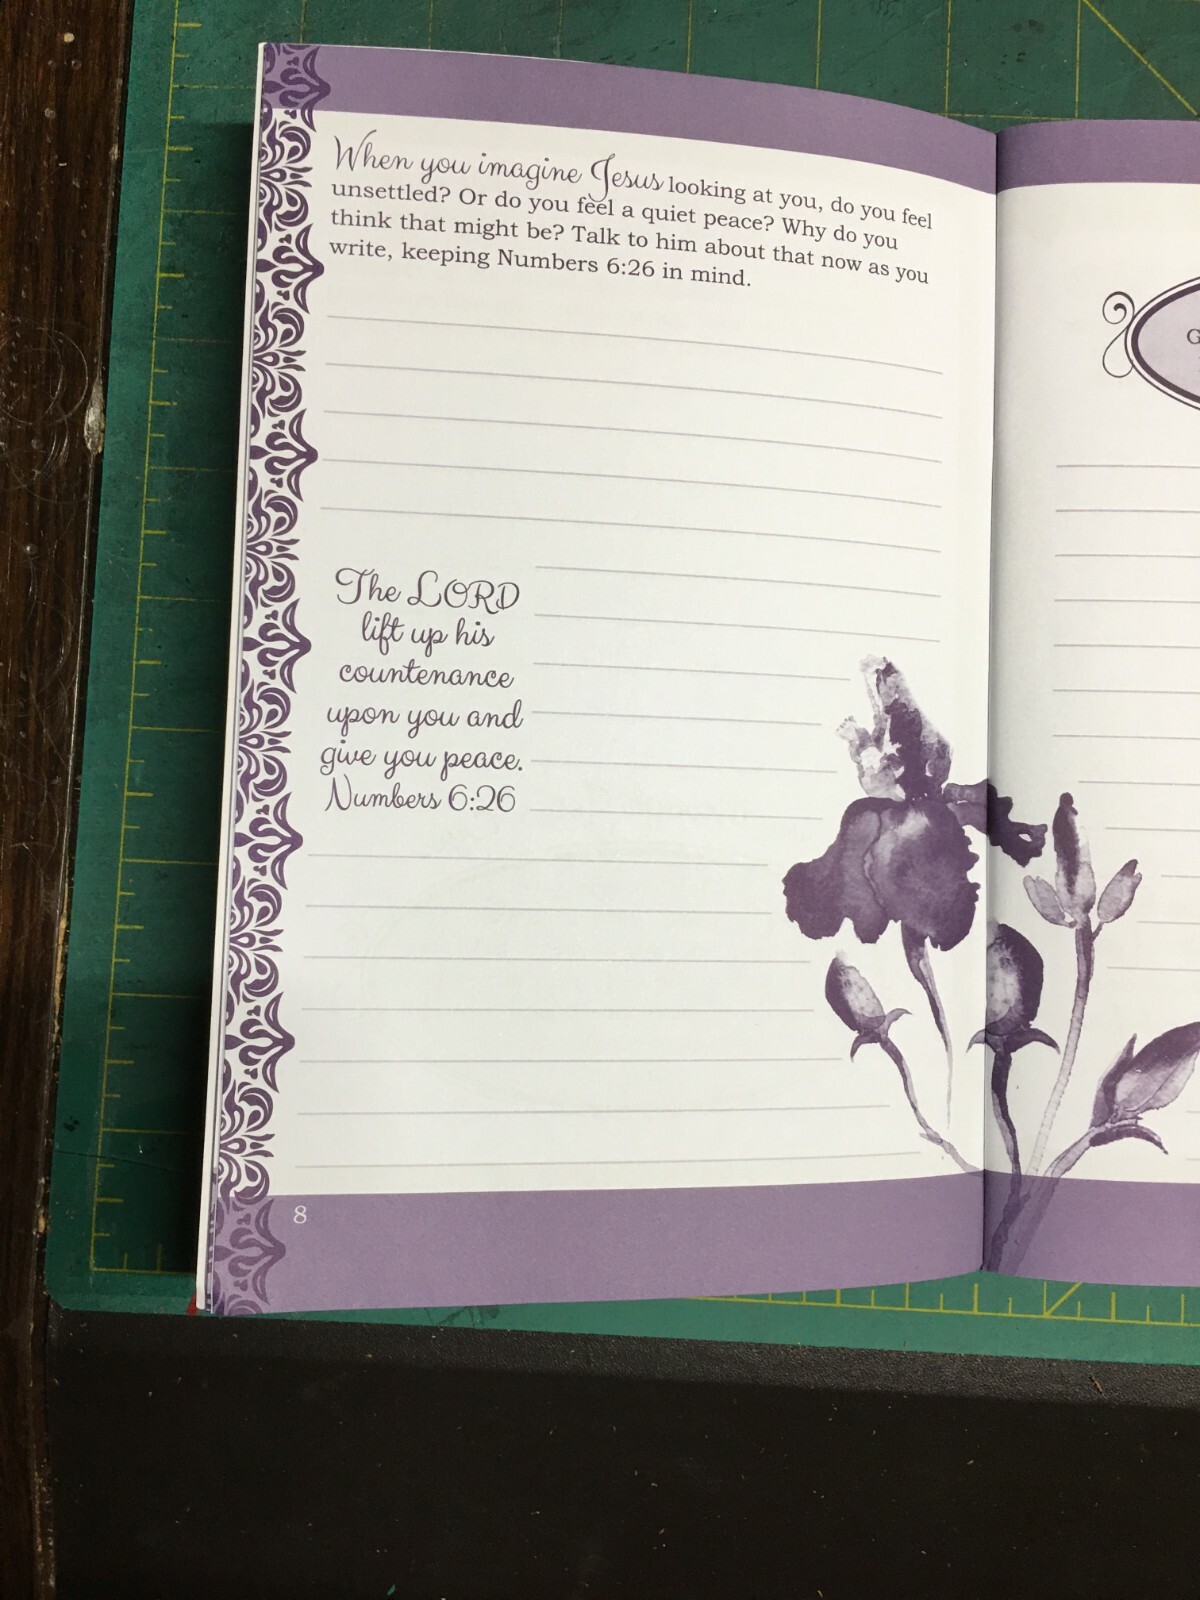 When you imagine Jesus looking at you, do you feel
unsettled? Or do you feel a quiet peace? Why do you
think that might be? Talk to him about that now as you
write, keeping Numbers 6:26 in mind.
The LORD
lift up his
countenance
upon you and
give you peace.
Numbers 6:26
8
G